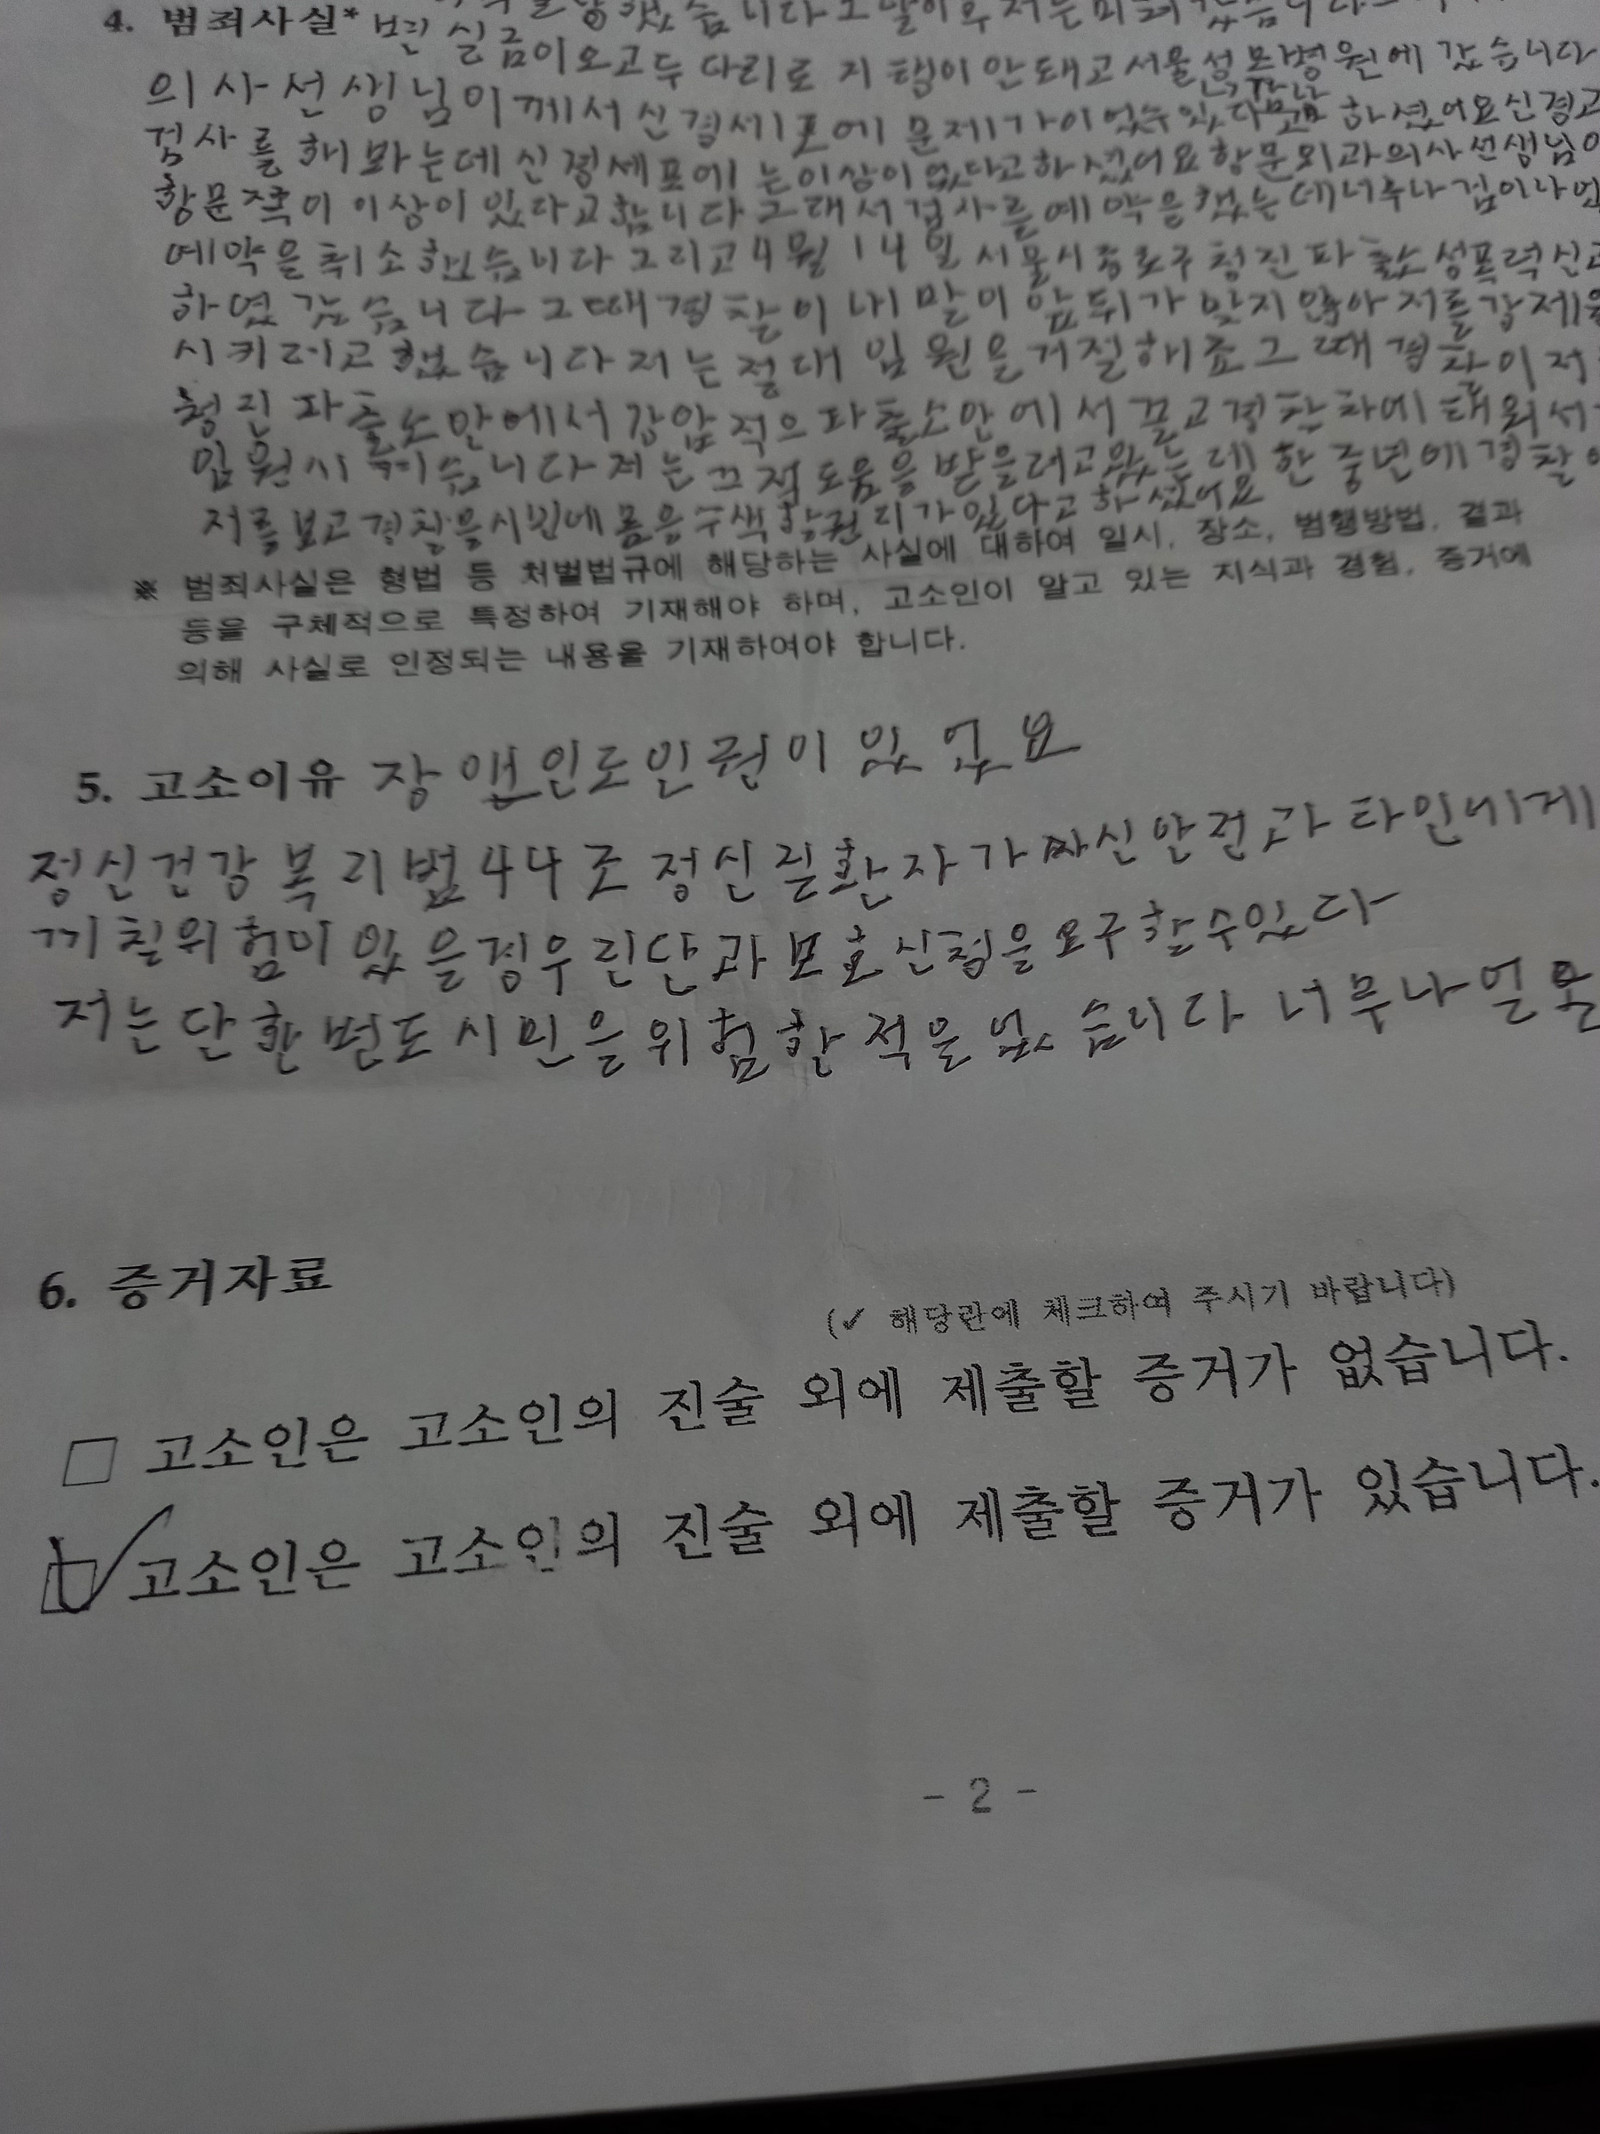 4. 범죄사실*
실금이오고두 다리로 지탱이 안돼고서울성모병원에 갔습니다
의사선생님이께서신경세포에 문제가이 있을수있다고 하셨어요신경고
검사를 해봐는데신경세포에는이상이 없다고하셨어요항문외과의사선생님이
항문쪽이 이상이 있다고합니다그래서검사를예약을했는데너무나겁이나
예약을취소했습니다그리고4월14일서울시종로구청진파출소성폭력신고
하였갔습니다그때경찰이 내말이 앞뒤가 맞지않아저를강제
시키려고했습니다저는절대 입원을거절해죠그때경찰이저
청진파출소안에서강압적으파출소안에서끌고경찰차에태워서
입원시켜습니다저는 도움을받을려고왔는데한중년에경찰
저를보고경찰을시민에몸을수색할권리가있다고하셨어요
※ 범죄사실은 형법 등 처벌법규에 해당하는 사실에 대하여 일시, 장소, 범행방법, 결과
등을 구체적으로 특정하여 기재해야 하며, 고소인이 알고 있는 지식과 경험, 증거에
의해 사실로 인정되는 내용을 기재하여야 합니다.
5. 고소이유 장애인도인권이있어요
정신건강복리법44조정신질환자가자신안전과타인에게
끼칠위험이있을경우진단과보호신청을요구할수있다
저는단한번도시민을위험한적을없습니다너무나억울
6. 증거자료
(✓ 해당란에 체크하여 주시기 바랍니다)
□ 고소인은 고소인의 진술 외에 제출할 증거가 없습니다.
☑ 고소인은 고소인의 진술 외에 제출할 증거가 있습니다.
- 2 -